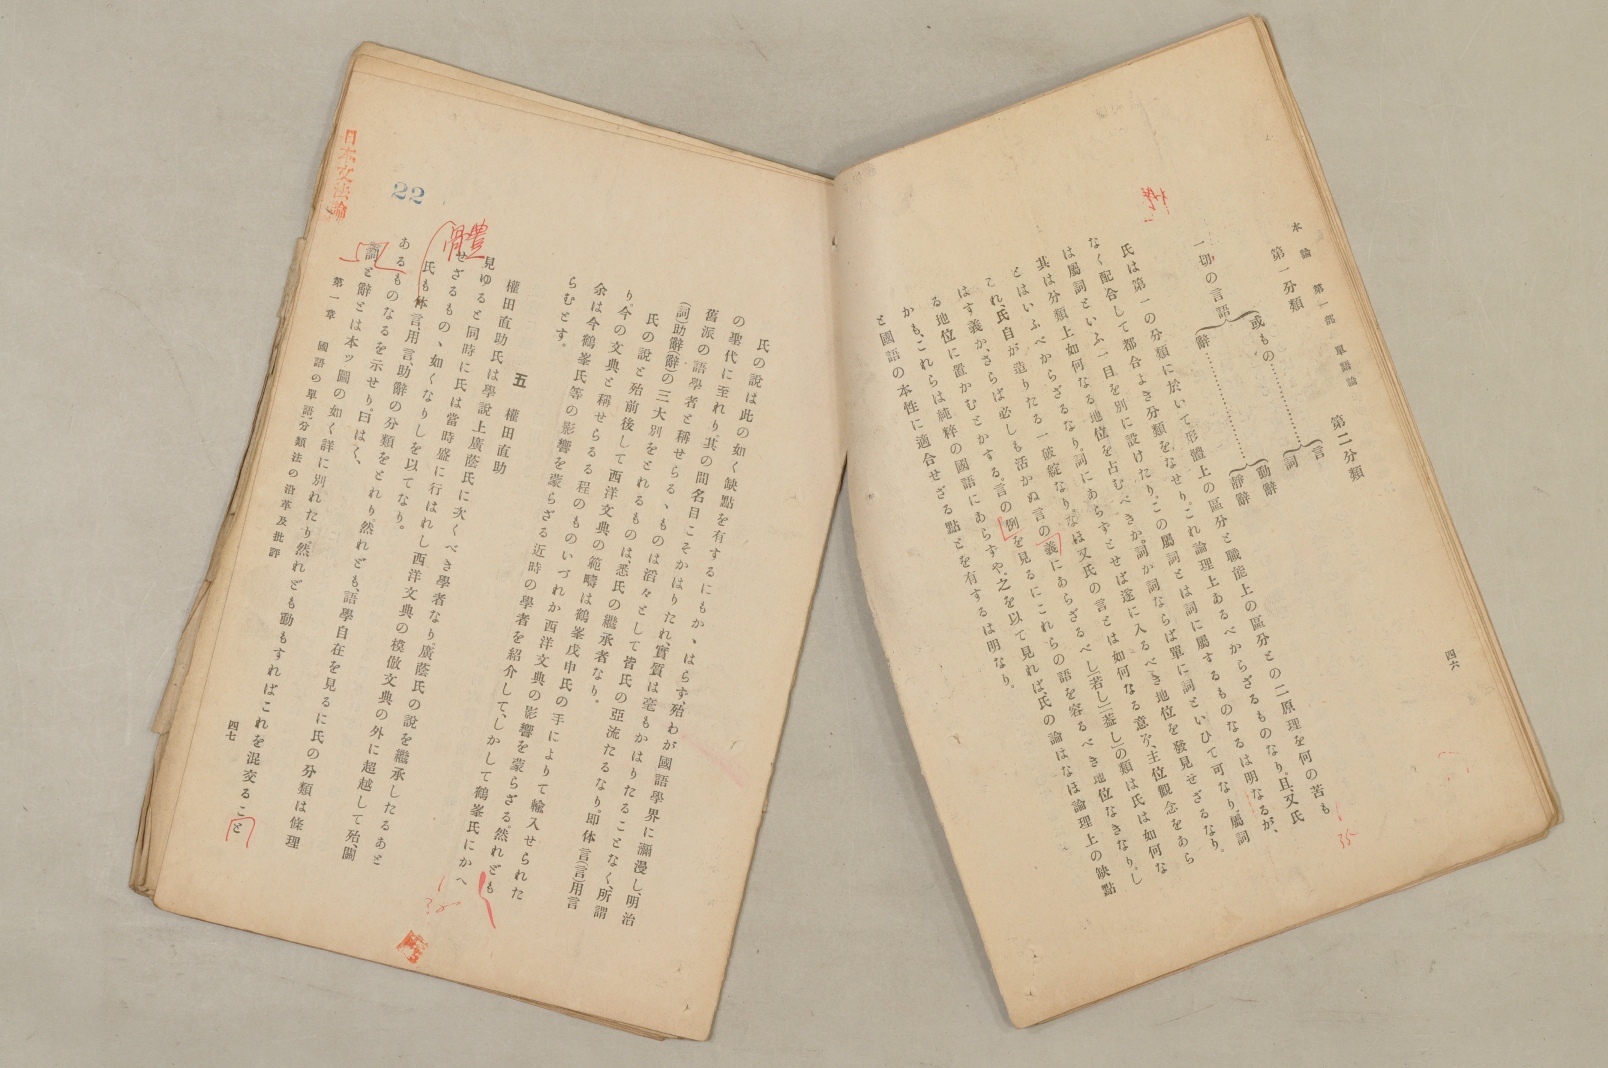 本論 第一部 單語論
四六
第一分類 第二分類
一切の言語
或もの
辭
言
詞
動辭
靜辭
氏は第一の分類に於いて形體上の區分と職能上の區分との二原理を何の苦も
なく配合して都合よき分類をなせり。これ論理上あるべからざるものなり。且、又氏
は屬詞といふ一目を別に設けたり。この屬詞とは詞に屬するものなるは明なるが、
其は分類上如何なる地位を占むべきか。詞か詞ならば單に詞といひて可なり。屬詞
とはいふべからざるなり。詞にあらずとせば遂に入るべき地位を發見せざるなり。
これ、氏自が造りたる一破綻なり。なほ又氏の言とは如何なる意ぞ、主位觀念をあら
はす義か、さらば必しも活かぬ言の義にあらざるべし。若し、蓋し」の類は氏は如何な
る地位に置かむとかする。言の例を見るにこれらの語を容るべき地位なきなり。し
かも、これらは純粹の國語にあらずや。之を以て見れば、氏の論はなほ論理上の缺點
と國語の本性に適合せざる點とを有するは明なり。
氏の說は此の如く缺點を有するにもかゝはらず、殆わが國語學界に瀰漫し、明治
の聖代に至れり。其の間名目こそかはりたれ、實質は毫もかはりたることなく、所謂
舊派の語學者と稱せらるゝものは滔々として皆氏の亞流たるなり。即体言(言)用言
(詞)助辭(辭)の三大別をとれるものは、悉氏の繼承者なり。
氏の說と殆前後して西洋文典の範疇は鶴峯戊申氏の手によりて輸入せられた
り。今の文典と稱せらるる程のものいづれか西洋文典の影響を蒙らざる。然れども
余は今鶴峯氏等の影響を蒙らざる近時の學者を紹介して、しかして鶴峯氏にかへ
らむとす。
五 權田直助
權田直助氏は學說上廣蔭氏に次くべき學者なり。廣蔭氏の說を繼承したるあと
見ゆると同時に氏は當時盛に行はれし西洋文典の模倣文典の外に超越して殆、關
せざるもの、如くなりしを以てなり。
氏も体言、用言助辭の分類をとれり。然れども、語學自在を見るに氏の分類は條理
あるものなるを示せり。曰はく、
詞と辭とは本ッ圖の如く詳に別れたり。然れども動もすればこれを混交ること
第一章 國語の單語分類法の沿革及批評
四七
體
22
日本文法論